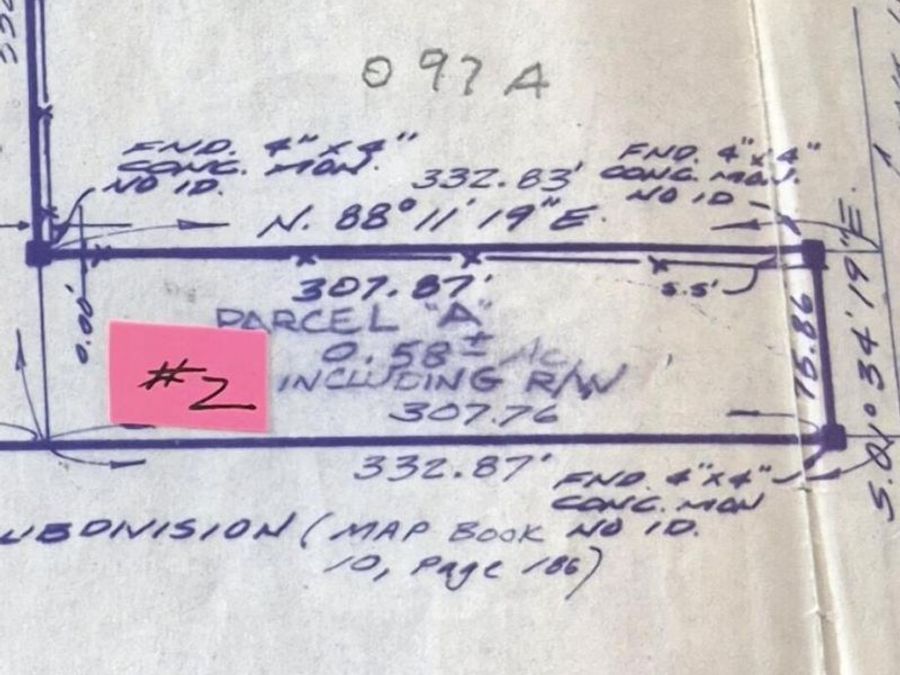 097A
FND. 4"x4"
CONC. MON.
NO ID.
332.83'
FND. 4"x4"
CONC. MON.
NO ID
N. 88° 11' 19" E.
307.87'
5.5'
0.00'
PARCEL "A"
0.58± Ac.
INCLUDING R/W
#2
307.76
75.86
332.87'
FND. 4"x4"
CONC. MON
NO ID.
S. 01° 34' 19" E.
UBDIVISION (MAP BOOK
10, Page 186)